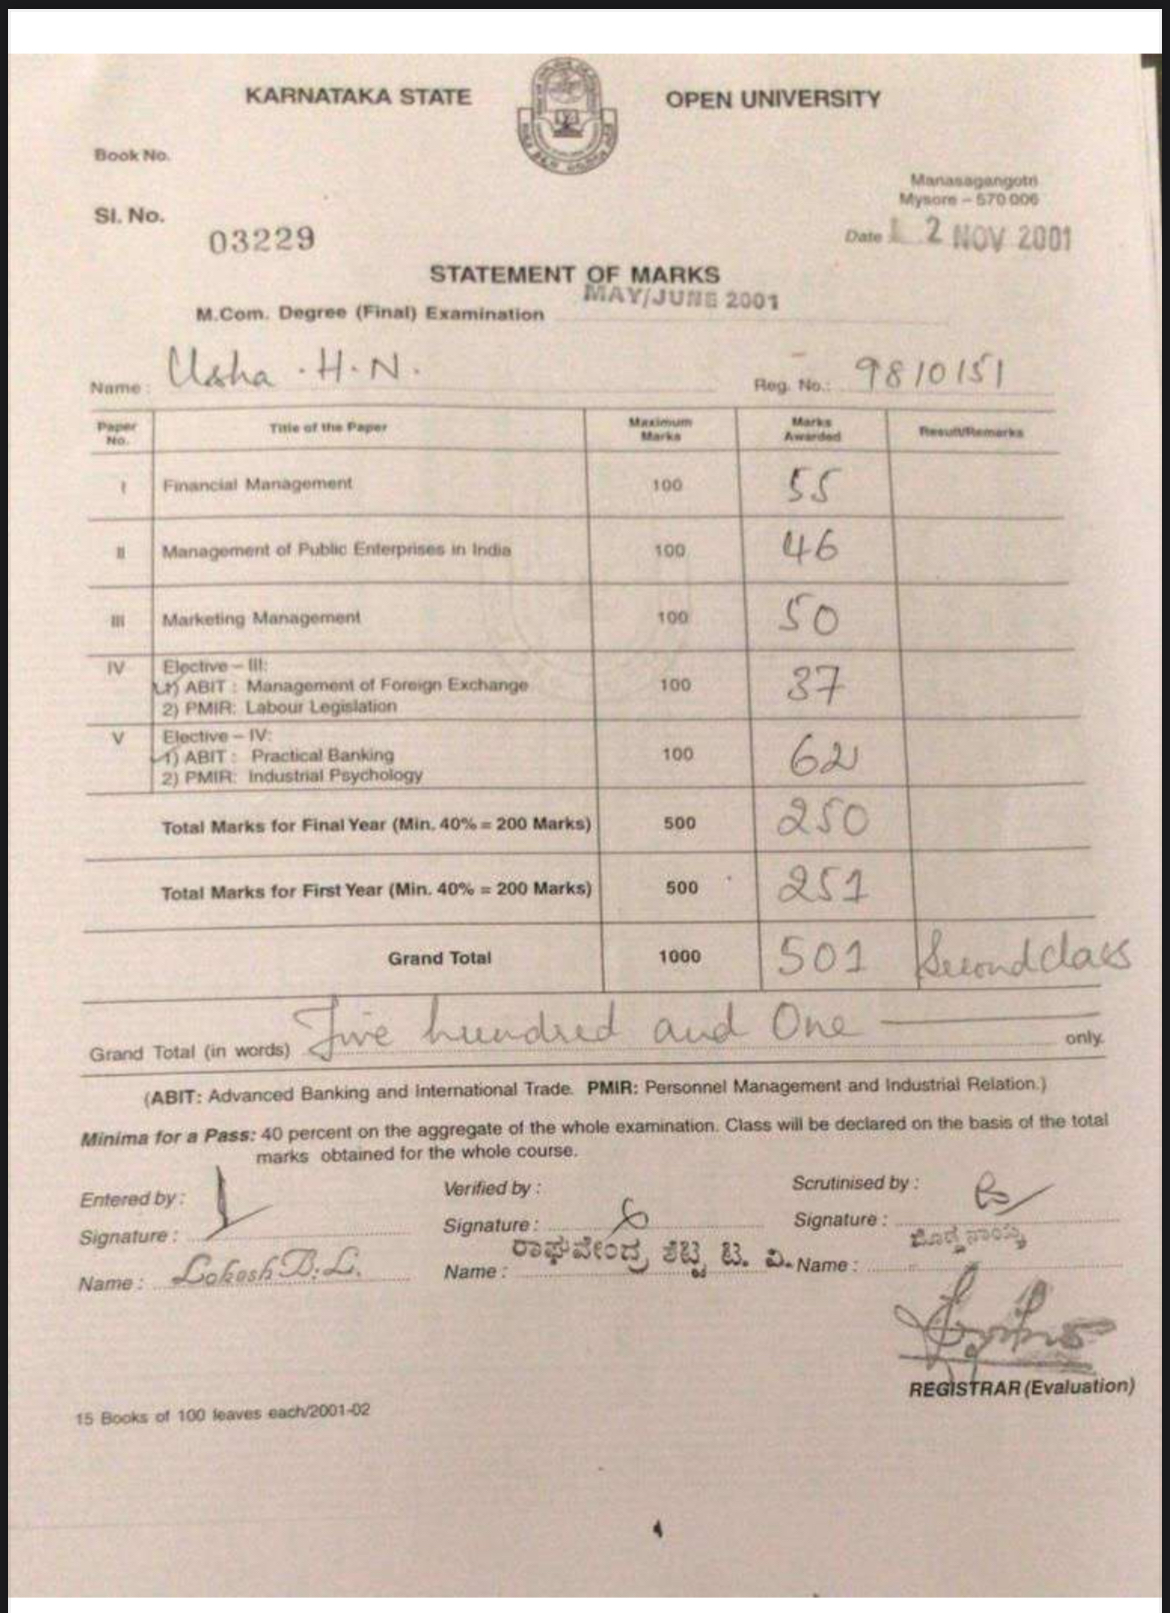 KARNATAKA STATE OPEN UNIVERSITY
Book No.
Manasagangotri
Mysore – 570 006
Sl. No.
03229
Date 2 NOV 2001
STATEMENT OF MARKS
M.Com. Degree (Final) Examination MAY/JUNE 2001
Name : Usha . H. N. Reg. No.: 9810151
Paper No. Title of the Paper Maximum Marks Marks Awarded Result/Remarks
I Financial Management 100 55
II Management of Public Enterprises in India 100 46
III Marketing Management 100 50
IV Elective – III:
1) ABIT : Management of Foreign Exchange 100 37
2) PMIR: Labour Legislation
V Elective – IV:
1) ABIT : Practical Banking 100 62
2) PMIR: Industrial Psychology
Total Marks for Final Year (Min. 40% = 200 Marks) 500 250
Total Marks for First Year (Min. 40% = 200 Marks) 500 251
Grand Total 1000 501 Second class
Grand Total (in words) Five hundred and One only.
(ABIT: Advanced Banking and International Trade. PMIR: Personnel Management and Industrial Relation.)
Minima for a Pass: 40 percent on the aggregate of the whole examination. Class will be declared on the basis of the total
marks obtained for the whole course.
Entered by : Verified by : Scrutinised by :
Signature : Signature : Signature :
Name : Lokesh B. L. Name : ರಾಘವೇಂದ್ರ ಶೆಟ್ಟಿ ಟಿ. ವಿ. Name :
REGISTRAR (Evaluation)
15 Books of 100 leaves each/2001-02